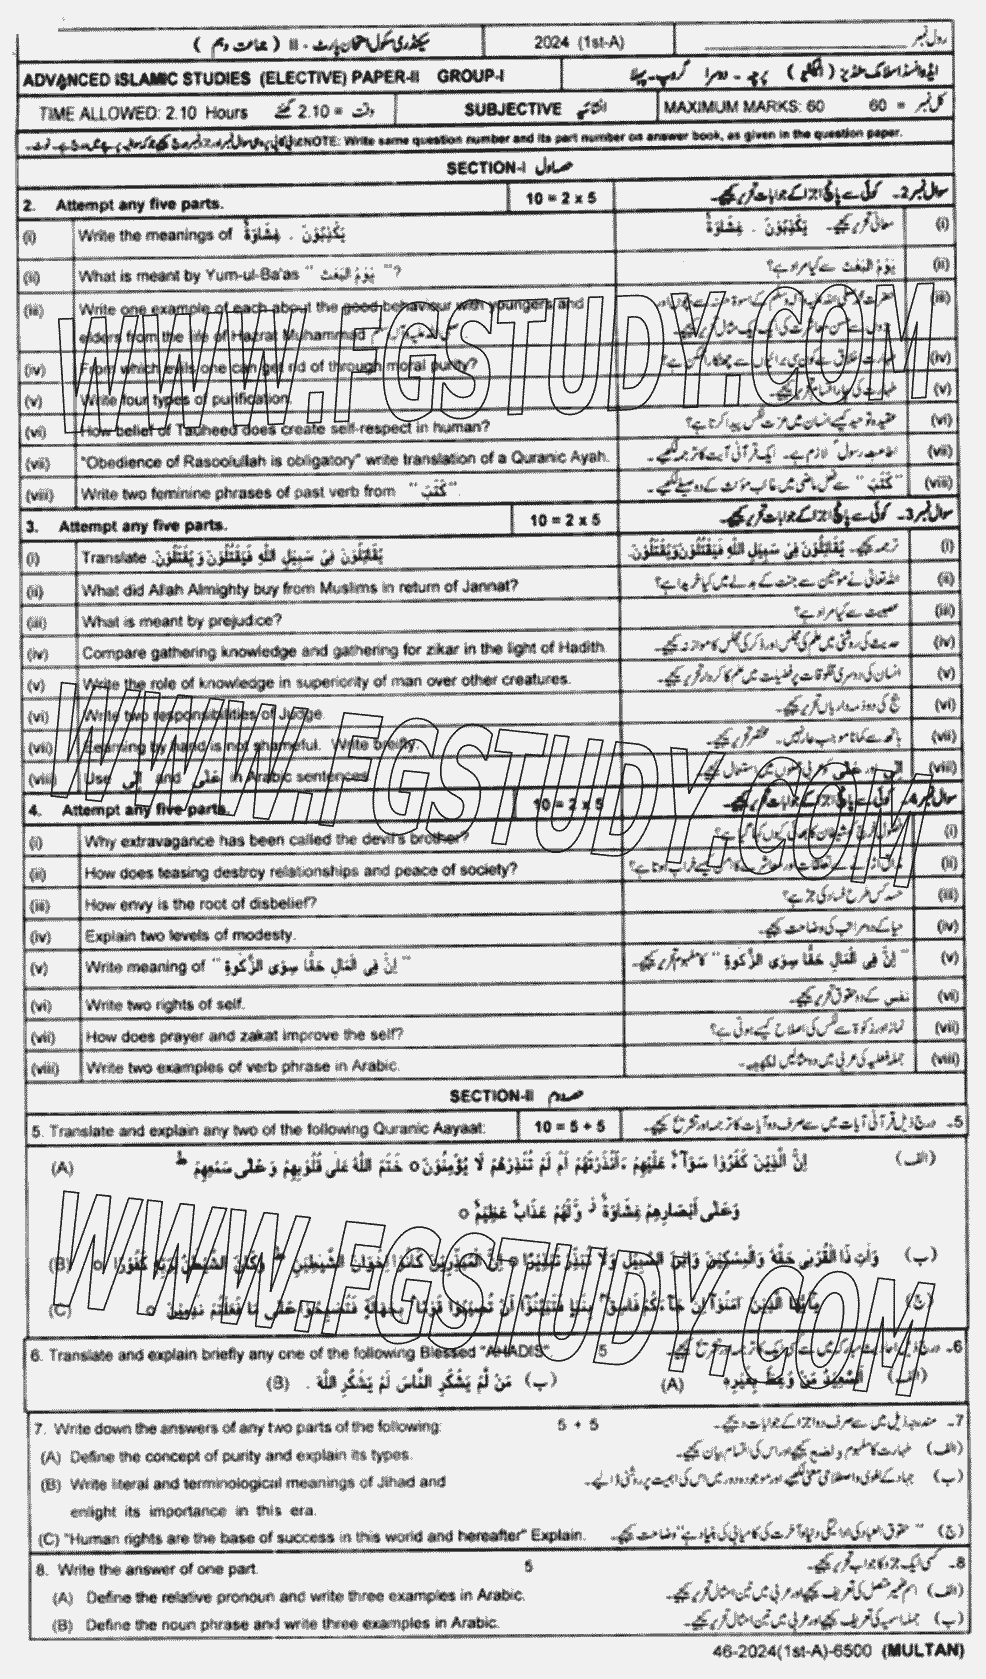 سیکنڈری سکول امتحان پارٹ - II ( جماعت دہم ) 2024 (1st-A) رول نمبر
ADVANCED ISLAMIC STUDIES (ELECTIVE) PAPER-II GROUP-I ایڈوانسڈ اسلامک سٹڈیز ( اختیاری ) پرچہ - دوسرا گروپ - پہلا
TIME ALLOWED: 2.10 Hours وقت = 2.10 گھنٹے SUBJECTIVE انشائیہ MAXIMUM MARKS: 60 کل نمبر = 60
NOTE: Write same question number and its part number on answer book, as given in the question paper.
SECTION-I حصہ اول
2. Attempt any five parts. 10 = 2 x 5 سوال نمبر 2۔ کوئی سے پانچ اجزا کے جوابات تحریر کیجیے۔
(i) Write the meanings of يَكْذِبُوْنَ . غِشَاوَةٌ معانی تحریر کیجیے۔ يَكْذِبُوْنَ . غِشَاوَةٌ (i)
(ii) What is meant by Yum-ul-Ba'as " يَوْمُ الْبَعْث "? يَوْمُ الْبَعْث سے کیا مراد ہے؟ (ii)
(iii) Write one example of each about the good behaviour with youngers and (iii)
elders from the life of Hazrat Muhammad
(iv) From which evils one can get rid of through moral purity? (iv)
(v) Write four types of purification. طہارت کی چار اقسام تحریر کیجیے۔ (v)
(vi) How belief of Tauheed does create self-respect in human? عقیدہ توحید کیسے انسان میں عزت نفس پیدا کرتا ہے؟ (vi)
(vii) "Obedience of Rasoolullah is obligatory" write translation of a Quranic Ayah. اطاعت رسول لازم ہے۔ ایک قرآنی آیت کا ترجمہ لکھیے۔ (vii)
(viii) Write two feminine phrases of past verb from " كَتَبَ ". " كَتَبَ " سے فعل ماضی میں غائب مؤنث کے دو صیغے لکھیے۔ (viii)
3. Attempt any five parts. 10 = 2 x 5 سوال نمبر 3۔ کوئی سے پانچ اجزا کے جوابات تحریر کیجیے۔
(i) Translate يُقَاتِلُوْنَ فِىْ سَبِيْلِ اللّٰهِ فَيَقْتُلُوْنَ وَ يُقْتَلُوْنَ. ترجمہ کیجیے۔ يُقَاتِلُوْنَ فِىْ سَبِيْلِ اللّٰهِ فَيَقْتُلُوْنَ وَيُقْتَلُوْنَ. (i)
(ii) What did Allah Almighty buy from Muslims in return of Jannat? اللہ تعالیٰ نے مومنین سے جنت کے بدلے میں کیا خریدا ہے؟ (ii)
(iii) What is meant by prejudice? عصبیت سے کیا مراد ہے؟ (iii)
(iv) Compare gathering knowledge and gathering for zikar in the light of Hadith. حدیث کی روشنی میں علم کی مجلس اور ذکر کی مجلس کا موازنہ کیجیے۔ (iv)
(v) Write the role of knowledge in superiority of man over other creatures. انسان کی دوسری مخلوقات پر فضیلت میں علم کا کردار تحریر کیجیے۔ (v)
(vi) Write two responsibilities of Judge. جج کی دو ذمہ داریاں تحریر کیجیے۔ (vi)
(vii) Learning by hand is not shameful. Write breifly. ہاتھ سے کمانا موجب عار نہیں۔ مختصر تحریر کیجیے۔ (vii)
(viii) Use اِلٰى and عَلٰى in Arabic sentences. اِلٰى اور عَلٰى کو عربی جملوں میں استعمال کیجیے۔ (viii)
4. Attempt any five parts. 10 = 2 x 5 سوال نمبر 4۔ کوئی سے پانچ اجزا کے جوابات تحریر کیجیے۔
(i) Why extravagance has been called the devil's brother? (i)
(ii) How does teasing destroy relationships and peace of society? (ii)
(iii) How envy is the root of disbelief? حسد کس طرح فساد کی جڑ ہے؟ (iii)
(iv) Explain two levels of modesty. حیا کے دو مراتب کی وضاحت کیجیے۔ (iv)
(v) Write meaning of " اِنَّ فِى الْمَالِ حَقًّا سِوَى الزَّكٰوةِ " " اِنَّ فِى الْمَالِ حَقًّا سِوَى الزَّكٰوةِ " کا مفہوم تحریر کیجیے۔ (v)
(vi) Write two rights of self. نفس کے دو حقوق تحریر کیجیے۔ (vi)
(vii) How does prayer and zakat improve the self? نماز اور زکوٰۃ سے نفس کی اصلاح کیسے ہوتی ہے؟ (vii)
(viii) Write two examples of verb phrase in Arabic. جملہ فعلیہ کی عربی میں دو مثالیں لکھیے۔ (viii)
SECTION-II حصہ دوم
5. Translate and explain any two of the following Quranic Aayaat: 10 = 5 + 5 5۔ درج ذیل قرآنی آیات میں سے صرف دو آیات کا ترجمہ اور تشریح کیجیے۔
(A) اِنَّ الَّذِيْنَ كَفَرُوْا سَوَآءٌ عَلَيْهِمْ ءَاَنْذَرْتَهُمْ اَمْ لَمْ تُنْذِرْهُمْ لَا يُؤْمِنُوْنَ ○ خَتَمَ اللّٰهُ عَلٰى قُلُوْبِهِمْ وَعَلٰى سَمْعِهِمْ ط (الف)
وَعَلٰى اَبْصَارِهِمْ غِشَاوَةٌ ز وَّلَهُمْ عَذَابٌ عَظِيْمٌ ○
(B) وَاٰتِ ذَا الْقُرْبٰى حَقَّهٗ وَالْمِسْكِيْنَ وَابْنَ السَّبِيْلِ وَلَا تُبَذِّرْ تَبْذِيْرًا ○ اِنَّ الْمُبَذِّرِيْنَ كَانُوْٓا اِخْوَانَ الشَّيٰطِيْنِ ط وَكَانَ الشَّيْطٰنُ لِرَبِّهٖ كَفُوْرًا ○ (ب)
(C) يٰٓاَيُّهَا الَّذِيْنَ اٰمَنُوْٓا اِنْ جَآءَكُمْ فَاسِقٌۢ بِنَبَاٍ فَتَبَيَّنُوْٓا اَنْ تُصِيْبُوْا قَوْمًۢا بِجَهَالَةٍ فَتُصْبِحُوْا عَلٰى مَا فَعَلْتُمْ نٰدِمِيْنَ ○ (ج)
6. Translate and explain briefly any one of the following Blessed "AHADIS". 5 6۔
(B) مَنْ لَّمْ يَشْكُرِ النَّاسَ لَمْ يَشْكُرِ اللّٰهَ . (ب) (A) اَلسَّعِيْدُ مَنْ وُعِظَ بِغَيْرِهٖ (الف)
7. Write down the answers of any two parts of the following: 5 + 5 7۔ مندرجہ ذیل میں سے صرف دو اجزا کے جوابات دیجیے۔
(A) Define the concept of purity and explain its types. (الف) طہارت کا مفہوم واضح کیجیے اور اس کی اقسام بیان کیجیے۔
(B) Write literal and terminological meanings of Jihad and (ب) جہاد کے لغوی و اصطلاحی معنی لکھیے اور موجودہ دور میں اس کی اہمیت پر روشنی ڈالیے۔
enlight its importance in this era.
(C) "Human rights are the base of success in this world and hereafter" Explain. (ج) "حقوق العباد کی ادائیگی دنیا و آخرت کی کامیابی کی بنیاد ہے" وضاحت کیجیے۔
8. Write the answer of one part. 5 8۔ کسی ایک جزو کا جواب تحریر کیجیے۔
(A) Define the relative pronoun and write three examples in Arabic. (الف)
(B) Define the noun phrase and write three examples in Arabic. (ب) جملہ اسمیہ کی تعریف کیجیے اور عربی میں تین امثال تحریر کیجیے۔
46-2024(1st-A)-6500 (MULTAN)
WWW.FGSTUDY.COM
WWW.FGSTUDY.COM
WWW.FGSTUDY.COM